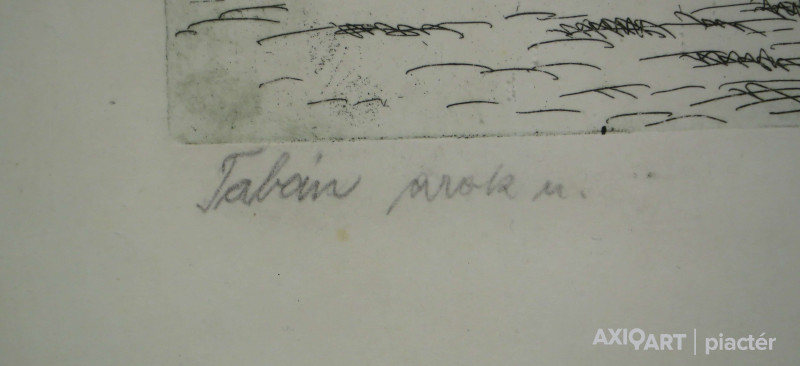 Tabán arok u.
AXIOART | piactér